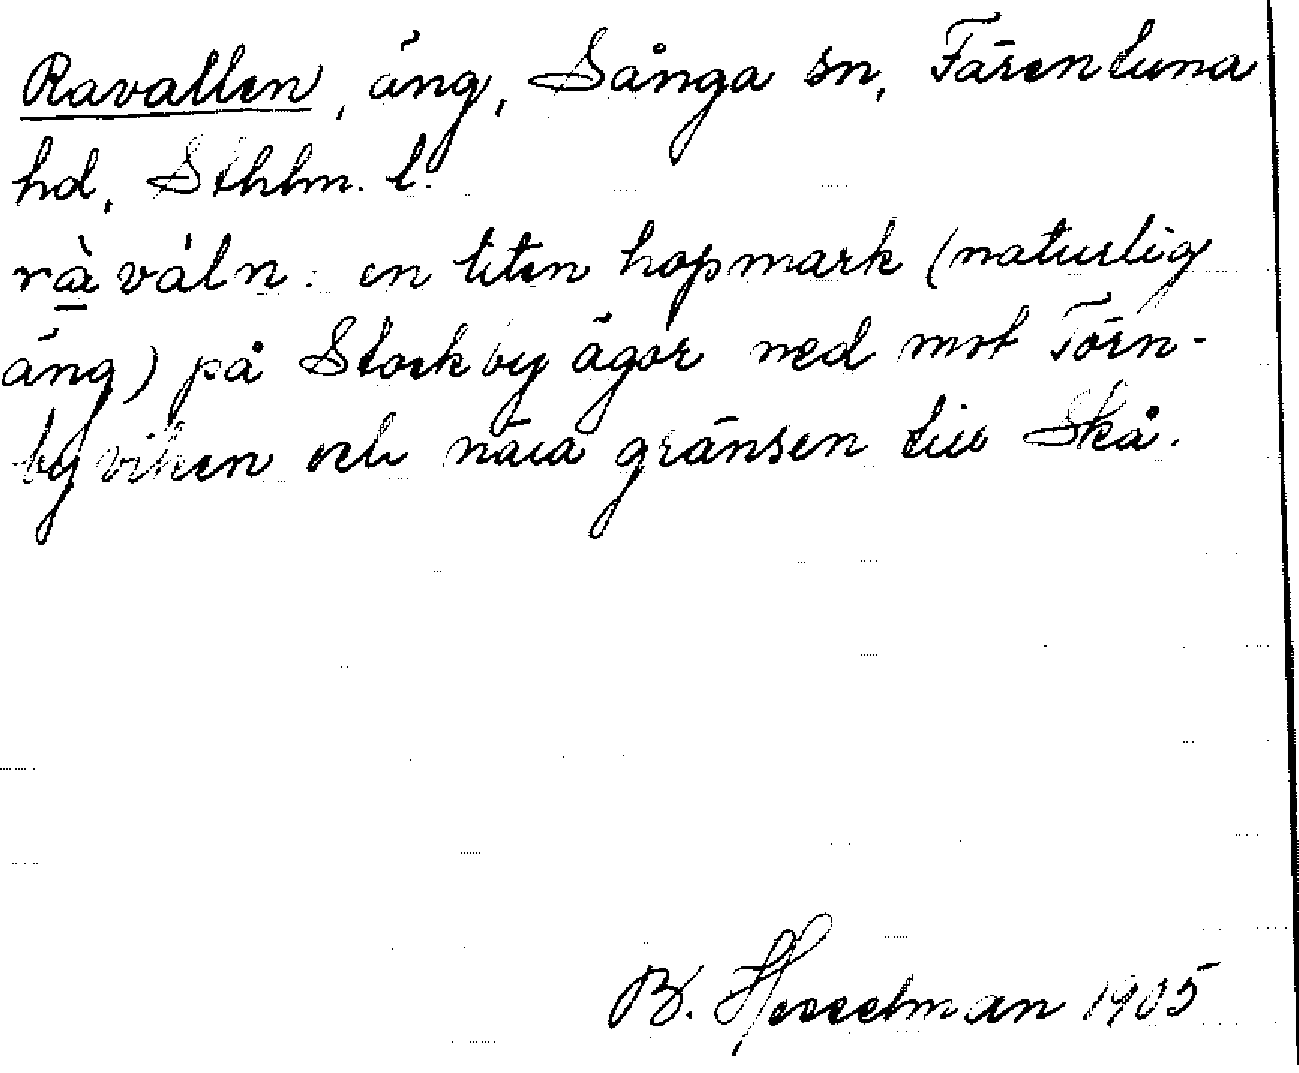 Ravallen, äng, Sånga sn, Färentuna
hd, Sthlm. l.
rà váln: en liten hopmark (naturlig
äng) på Stockby ägor ned mot Törn-
byviken och nära gränsen till Skå.
B. Hesselman 1905